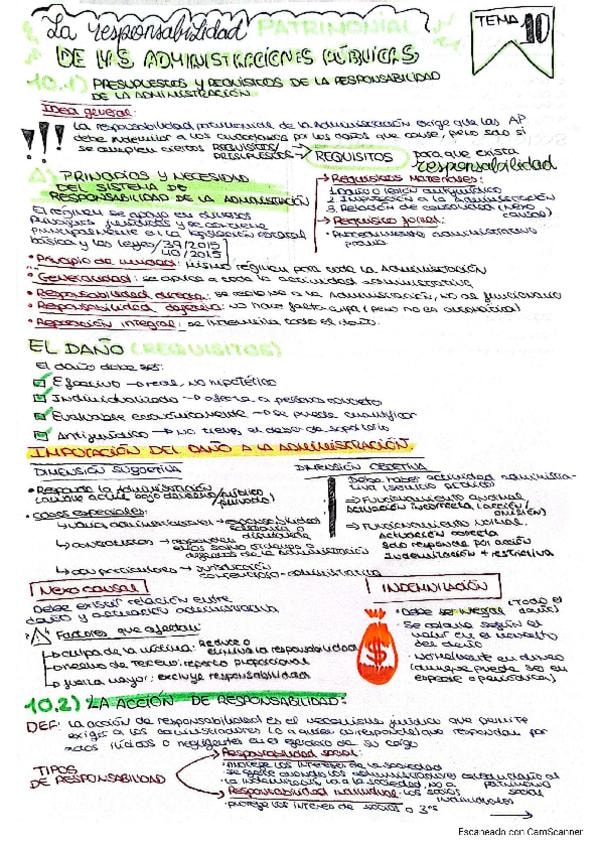 La responsabilidad PATRIMONIAL
DE LAS ADMINISTRACIONES PÚBLICAS
TEMA 10
10.1) PRESUPUESTOS Y REQUISITOS DE LA RESPONSABILIDAD
DE LA ADMINISTRACIÓN
Idea general:
La responsabilidad patrimonial de la Administración exige que las AP
debe indemnizar a los ciudadanos por los daños que cause, pero solo si
se cumplen ciertos REQUISITOS/
PRESUPUESTOS
REQUISITOS para que exista
responsabilidad
A) PRINCIPIOS Y NECESIDAD
DEL SISTEMA DE
RESPONSABILIDAD DE LA ADMINISTRACIÓN
El régimen se apoya en diversos
principios jurídicos y se contiene
principalmente en la legislación estatal
básica y las leyes 39/2015
40/2015
Requisitos materiales:
1. Daño o lesión antijurídico
2. Imputación a la Administración
3. Relación de causalidad (nexo
causal)
Requisito formal:
Procedimiento administrativo
previo
• Principio de unidad: mismo régimen para toda la Administración
• Generalidad: se aplica a toda la actividad administrativa
• Responsabilidad directa: se reclama a la Administración, no al funcionario
• Responsabilidad objetiva: no hace falta culpa (pero no es automática)
• Reparación integral: se indemniza todo el daño.
EL DAÑO (REQUISITOS)
El daño debe ser:
Efectivo → real, no hipotético
Individualizado → afecta a persona concreta
Evaluable económicamente → se puede cuantificar
Antijurídico → no tienes el deber de soportarlo
IMPUTACIÓN DEL DAÑO A LA ADMINISTRACIÓN
DIMENSIÓN SUBJETIVA
• Responde la Administración
(aunque actúe bajo derecho público/
privado)
• Casos especiales:
↳ Varias administraciones → responsabilidad
solidaria o
distribuida
↳ contratistas → responden
ellos salvo órdenes o
de la Administración
↳ con particulares → jurisdicción
contencioso-administrativa
DIMENSIÓN OBJETIVA
Debe haber actividad administra-
tiva (servicio público)
⇒ Funcionamiento anormal
Actuación incorrecta (acción/
omisión)
⇒ Funcionamiento normal.
Actuación correcta
Solo responde por acción
Indemnización + restrictiva
Nexo causal
Debe existir relación entre
daño y actuación administrativa
Factores que afectan:
culpa de la víctima: reduce o
elimina la responsabilidad
de tercero: reparto proporcional
fuerza mayor: excluye responsabilidad
INDEMNIZACIÓN
• Debe ser integral (todo el
daño)
• Se calcula según el
valor en el momento
del daño
• Normalmente en dinero
(aunque puede ser en
especie o periódica)
10.2) LA ACCIÓN DE RESPONSABILIDAD:
DEF: La acción de responsabilidad es el mecanismo jurídico que permite
exigir a los administradores (o a quien corresponda) que respondan por
actos ilícitos o negligentes en el ejercicio de su cargo
TIPOS
DE RESPONSABILIDAD
Responsabilidad social:
• protege los intereses de la sociedad
• se ejerce cuando los administradores causan daño al
patrimonio social
• la indemnización va a la sociedad, no a
los socios individuales
Responsabilidad individual:
• protege los interés de socios o 3ºs
Escaneado con CamScanner